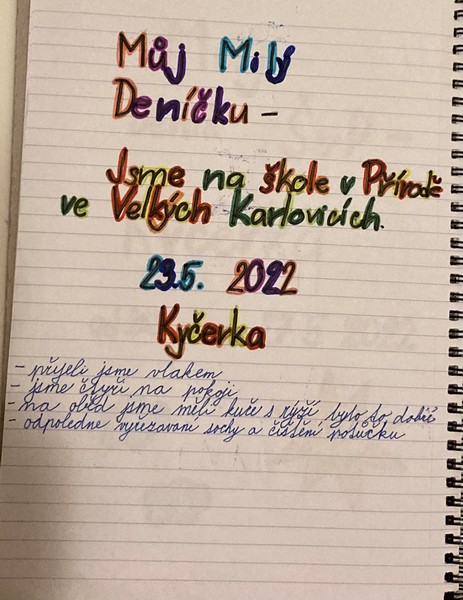 Můj Milý
Deníčku –
Jsme na škole v Přírodě
ve Velkých Karlovicích.
23.5. 2022
Kyčerka
- přijeli jsme vlakem
- jsme čtyři na pokoji
- na oběd jsme měli kuře s rýží bylo to dobré
- odpoledne vyřezavaní sochy a čištění potůčku